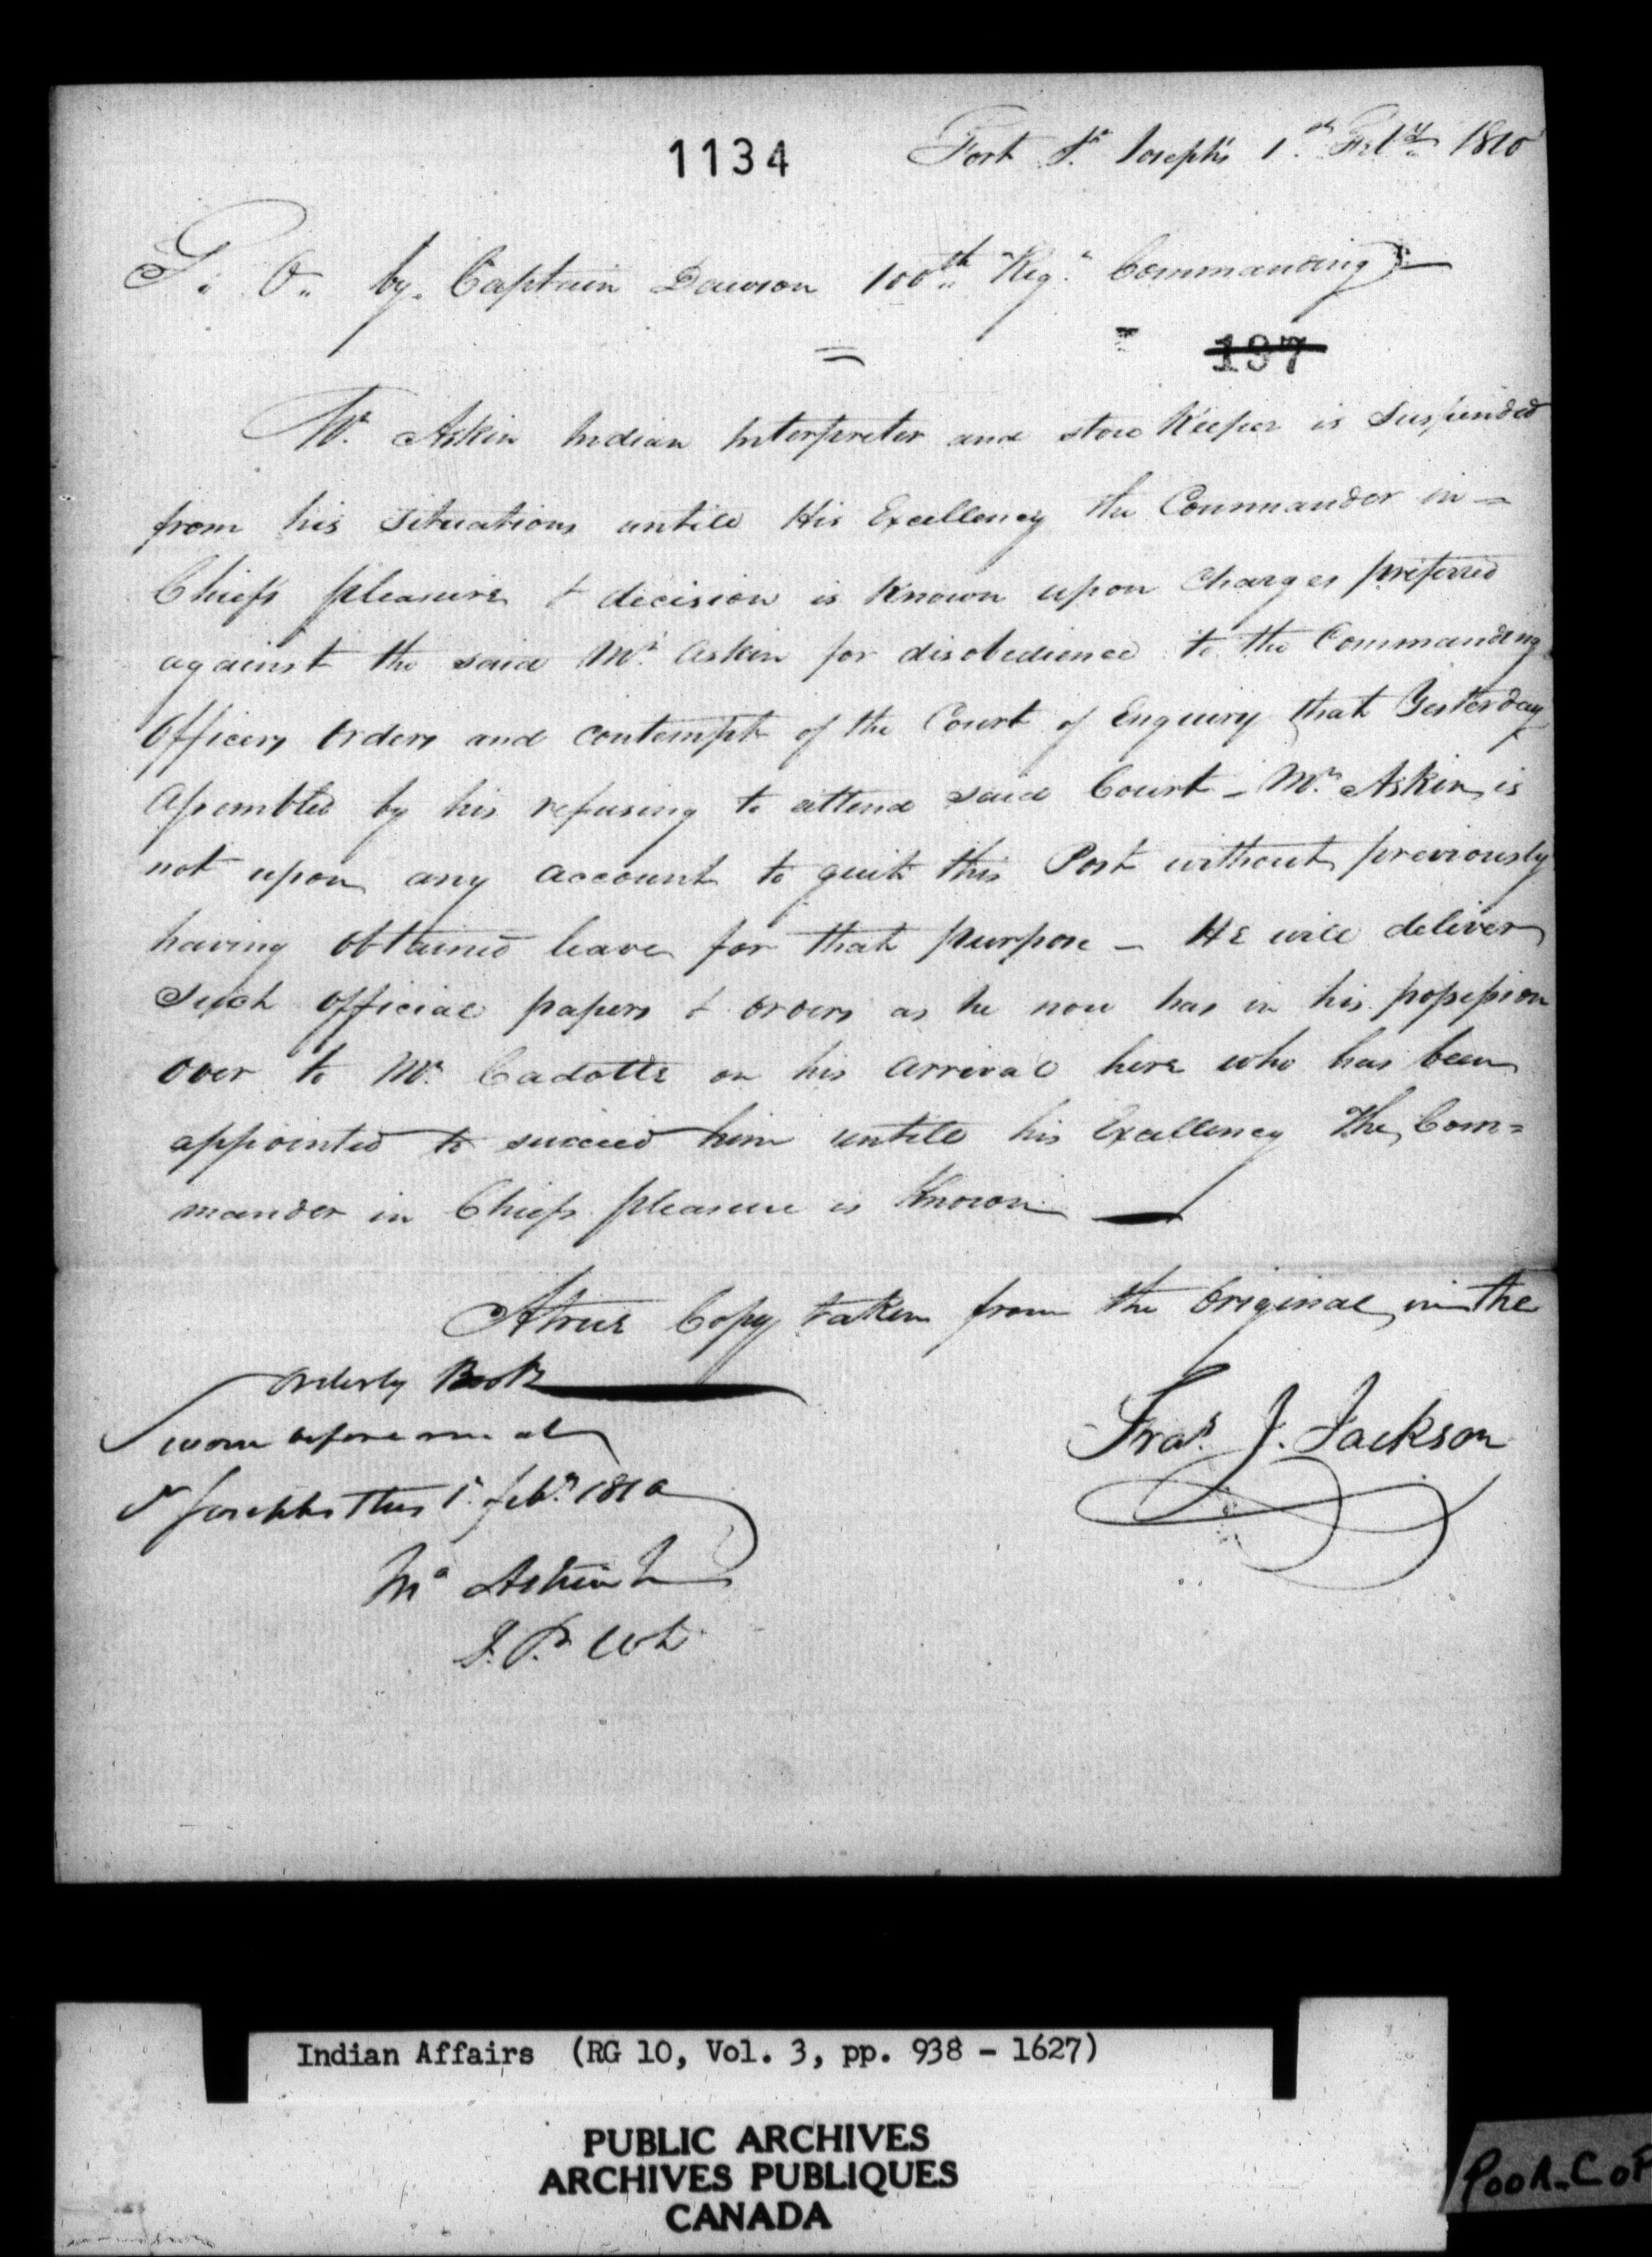 1134
Fort St Joseph's 1st Feby 1810
P. O. by Captain Dawson 100th Regt Commanding
197
Mr Askin Indian Interpreter and store Keeper is Suspended
from his situations untill His Excellency the Commander in-
Chiefs pleasure & decision is Known upon Charges preferred
against the said Mr Askin for disobedience to the Commanding
Officers Orders and contempt of the Court of Enquiry that Yesterday
Assembled by his refusing to attend said Court - Mr Askin is
not upon any account to quit this Post without previously
having obtained leave for that purpose - He will deliver
Such official papers & orders as he now has in his possession
over to Mr Cadotte on his arrival here who has been
appointed to succeed him untill his Excellency The Com=
mander in Chiefs pleasure is Known
A true Copy taken from the Original in the
Orderly Book
Sworn before me at
St Josephs This 1t Feby 1810
Fras J. Jackson
Askin
J. P.
Indian Affairs (RG 10, Vol. 3, pp. 938 - 1627)
PUBLIC ARCHIVES
ARCHIVES PUBLIQUES
CANADA
POOR COP